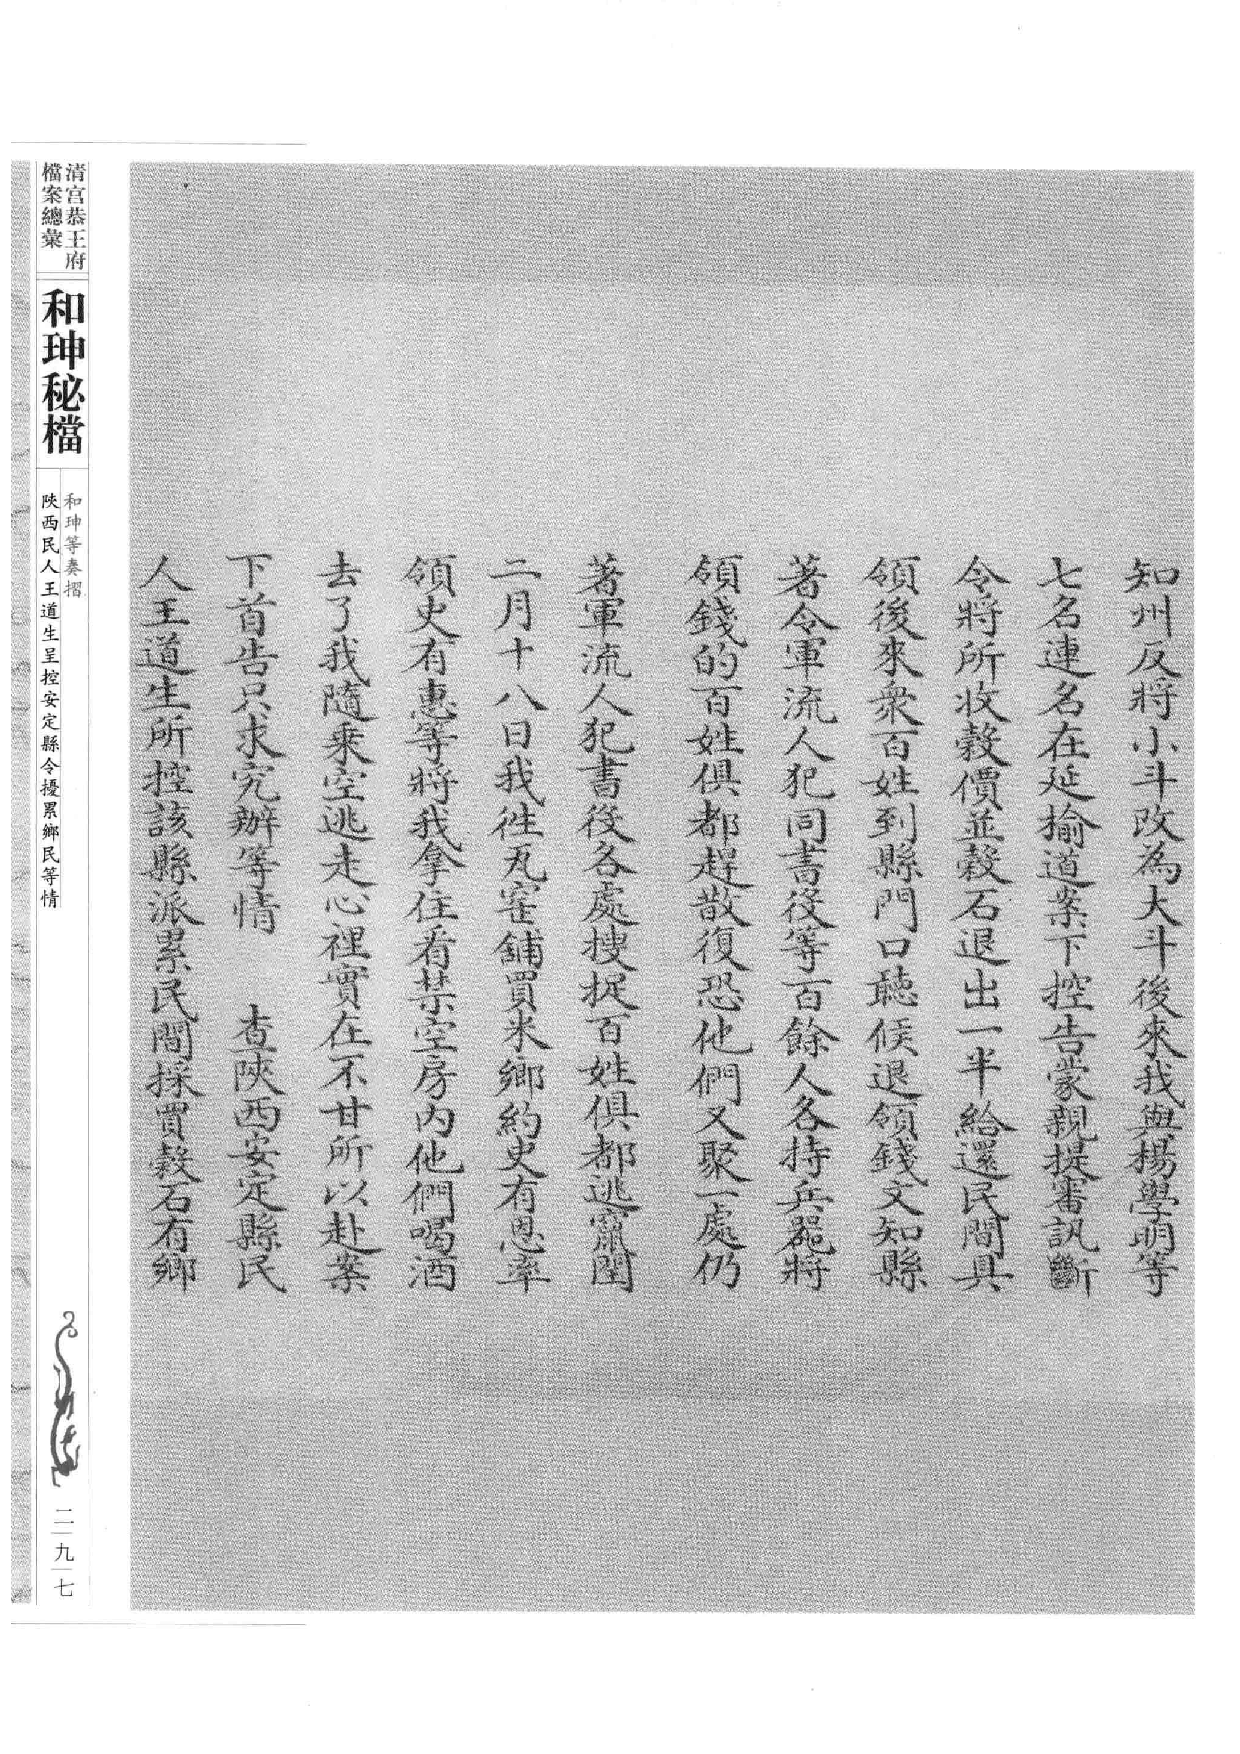 知州反將小斗改為大斗後來我與楊學明等
七名連名在延榆道案下控告蒙親提審訊斷
令將所收穀價並穀石退出一半給還民間具
領後來衆百姓到縣門口聽候退領錢文知縣
著令軍流人犯同書役等百餘人各持兵器將
領錢的百姓俱都趕散復恐他們又聚一處仍
著軍流人犯書役各處搜捉百姓俱都逃竄閏
二月十八日我徃瓦窑鋪買米鄉約史有恩率
領史有惠等將我拿住看禁空房内他們喝酒
去了我隨乘空逃走心裡實在不甘所以赴案
下首告只求究辦等情 查陝西安定縣民
人王道生所控該縣派累民間採買穀石有鄉
清宫恭王府
檔案總彙
和珅秘檔
和珅等奏摺
陝西民人王道生呈控安定縣令擾累鄉民等情
二九七